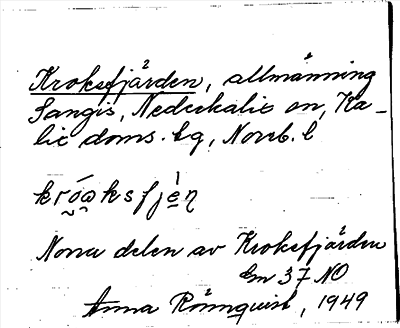 Kroksfjärden, allmänning
Sangis, Nederkalix sn, Ka-
lix doms.-bg, Norrb. l
Norra delen av Kroksfjärden
Gn 37 NO
Anna Rönnquist, 1949